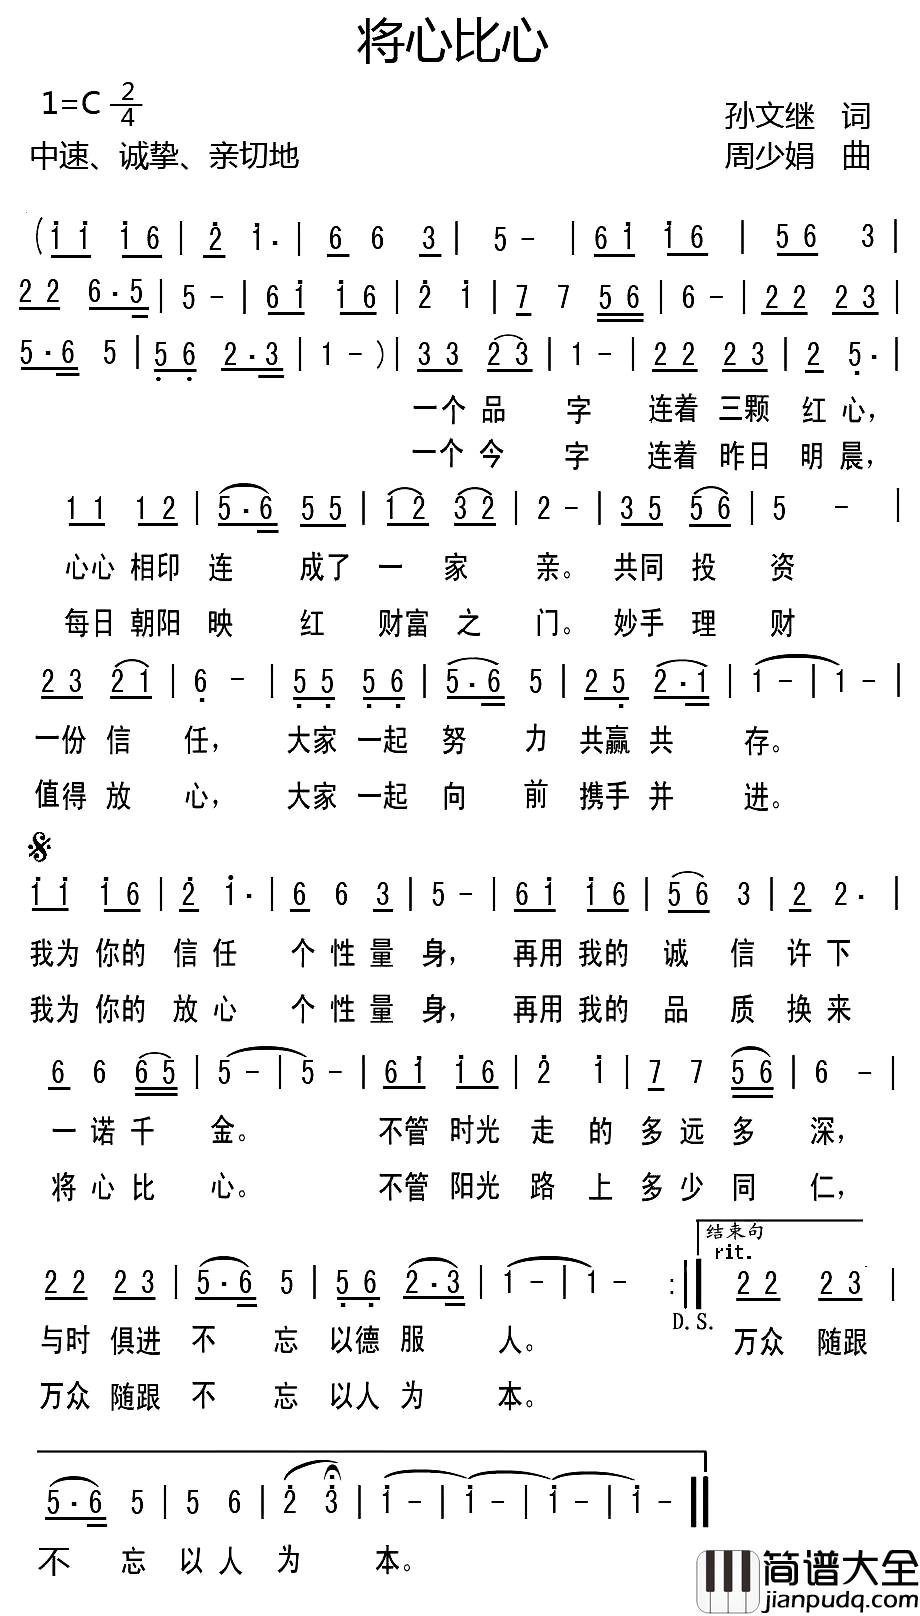 将心比心
1=C 2/4
孙文继 词
中速、诚挚、亲切地
周少娟 曲
(1 1 1 6 | 2 1 · | 6 6 3 | 5 - | 6 1 1 6 | 5 6 3 |
2 2 6 · 5 | 5 - | 6 1 1 6 | 2 1 | 7 7 5 6 | 6 - | 2 2 2 3 |
5 · 6 5 | 5 6 2 · 3 | 1 - ) | 3 3 2 3 | 1 - | 2 2 2 3 | 2 5 · |
一个 品 字 连着 三颗 红 心，
一个 今 字 连着 昨日 明 晨，
1 1 1 2 | 5 · 6 5 5 | 1 2 3 2 | 2 - | 3 5 5 6 | 5 - |
心心 相印 连 成了 一 家 亲。 共同 投 资
每日 朝阳 映 红 财富 之 门。 妙手 理 财
2 3 2 1 | 6 - | 5 5 5 6 | 5 · 6 5 | 2 5 2 · 1 | 1 - | 1 - |
一份 信 任， 大家 一起 努 力 共赢 共 存。
值得 放 心， 大家 一起 向 前 携手 并 进。
1 1 1 6 | 2 1 · | 6 6 3 | 5 - | 6 1 1 6 | 5 6 3 | 2 2 · |
我为 你的 信 任 个 性 量 身， 再用 我的 诚 信 许 下
我为 你的 放 心 个 性 量 身， 再用 我的 品 质 换 来
6 6 6 5 | 5 - | 5 - | 6 1 1 6 | 2 1 | 7 7 5 6 | 6 - |
一 诺 千 金。 不管 时光 走 的 多 远 多 深，
将 心 比 心。 不管 阳光 路 上 多 少 同 仁，
结束句
rit.
2 2 2 3 | 5 · 6 5 | 5 6 2 · 3 | 1 - | 1 - :|| 2 2 2 3 |
D.S.
与时 俱进 不 忘 以德 服 人。 万众 随跟
万众 随跟 不 忘 以人 为 本。
5 · 6 5 | 5 6 | 2 3 | 1 - | 1 - | 1 - | 1 - ||
不 忘 以 人 为 本。
简谱大全
jianpudq.com